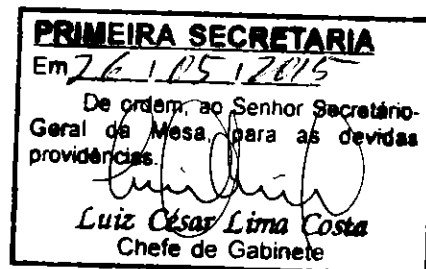 PRIMEIRA SECRETARIA
Em 26 / 05 / 2015
De ordem, ao Senhor Secretário-
Geral da Mesa, para as devidas
providências.
Luiz César Lima Costa
Chefe de Gabinete